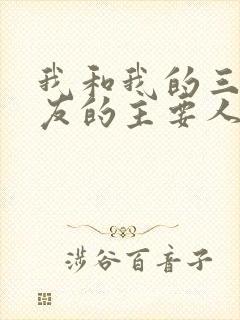 我和我的三
友的主要人
涉谷百音子